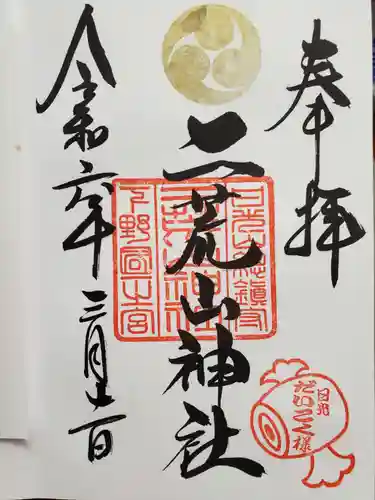 奉拝
二荒山神社
令和六年三月十一日
日光山総鎮守
二荒山神社
下野國一之宮
日光
だいこく様